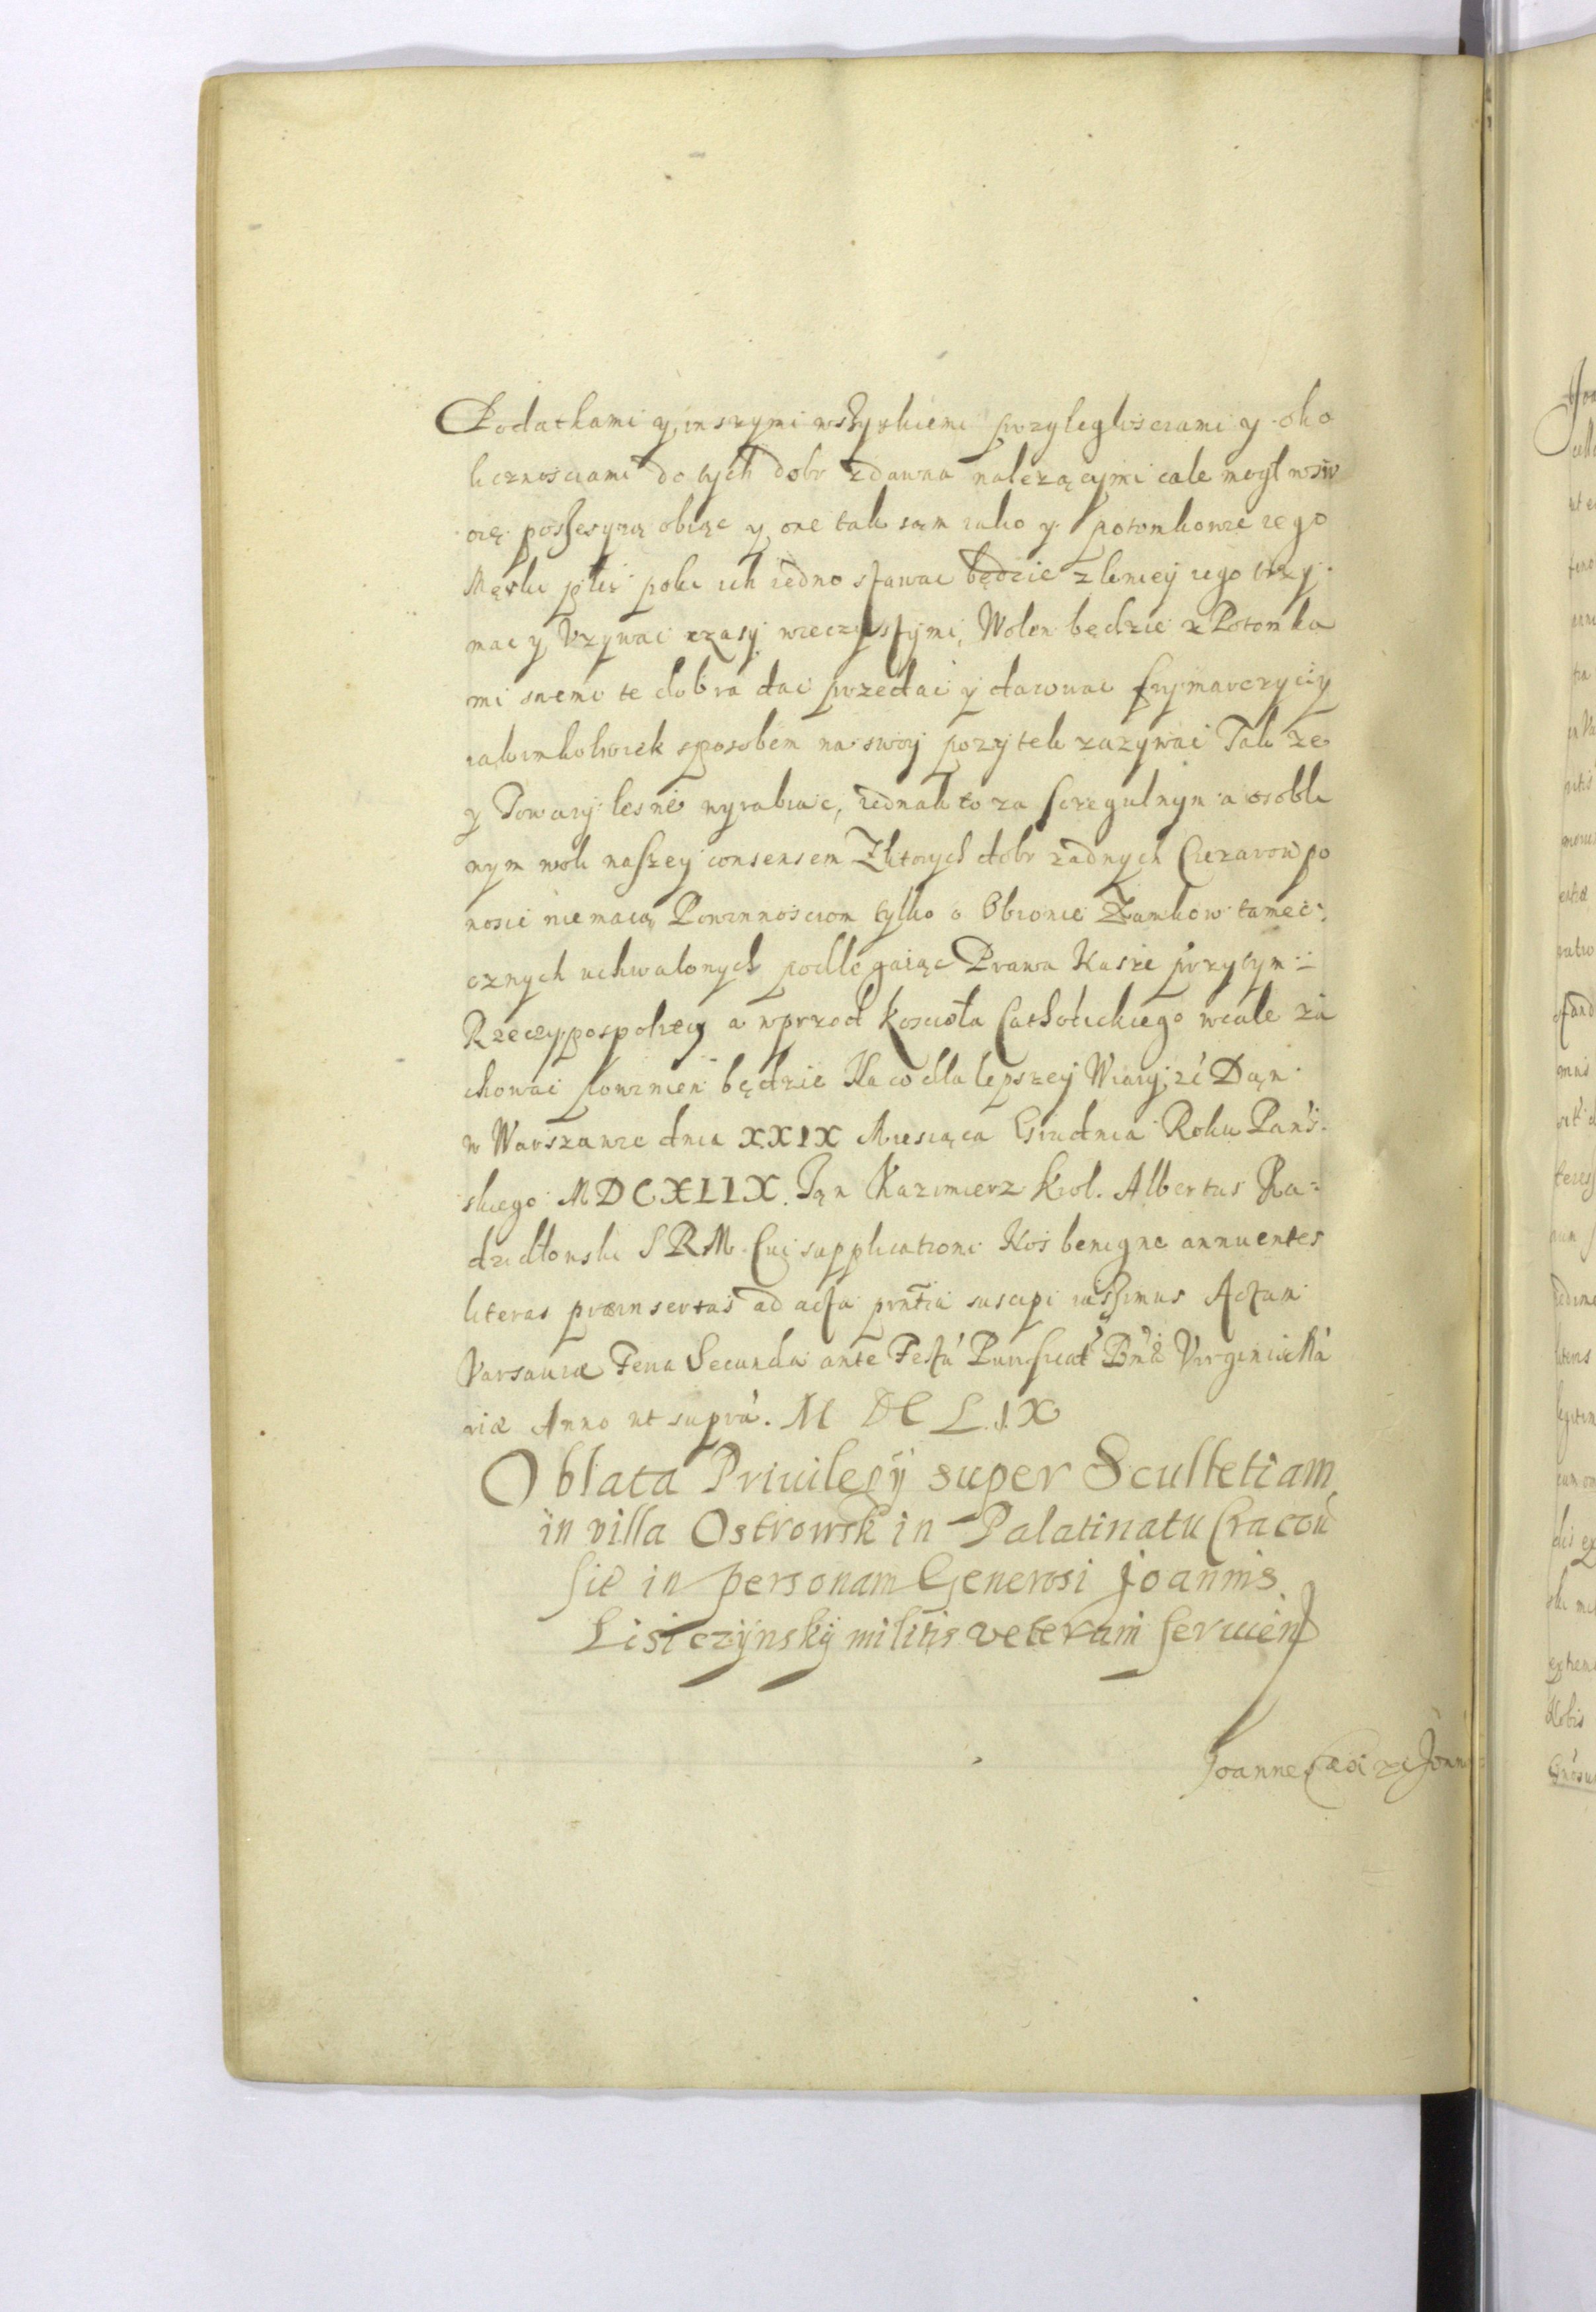 Podatkami y inszymi wszytkiemi przyległosciami y oko
licznosciami do tych dobr zdawna nalezącymi cale mogł wsw
oię possesyią obiąc y one tak sam iako y potomkowie iego
Męskiey płci poki ich iedno stawac będzie z liniey iego trzy
mac y Vzywac czasy wieczystymi, Wolen będzie z Potomka
mi swemi te dobra dac przedac y darowac frymarczyc y
iakimkolwiek sposobem na swoy pozytek zazywac Tak ze
y Towary lesne wyrabiac, iednak to za szczegulnym a osobli
wym woli naszey consensem Zktorych dobr zadnych Ciezarow po
nosic nie maią Powinnosciom tylko o Obronie Zamkow tamec:
cznych uchwalonych podlegaiąc Prawa Nasze przytym :
Rzeczypospolitey a wprzod koscioła Catholickiego wcale za
chowac powinien będzie Na co dla lepszey Wiary, zc Dąn
w Warszawie dnia XXIX Miesiąca Grudnia Roku Pans:
skiego MDCXLIX. Jąn Kazimierz Krol. Albertus Ra=
dzidłonski S R M. Cui supplicationi Nos benigne annuentes
literas præinsertas ad acta pñtia suscipi iussimus Actum
Varsauiæ Feria Secunda ante Festũ Purificat Bmæ Virginis Ma
riæ Anno ut supra. M DC L.IX
Oblata Priuilegij super Scultetiam
in villa Ostrowsk in Palatinatu Cracoui
sie in personam Generosi Joannis
Lisiczÿnskij militis veterani seruien
Joannes Casi